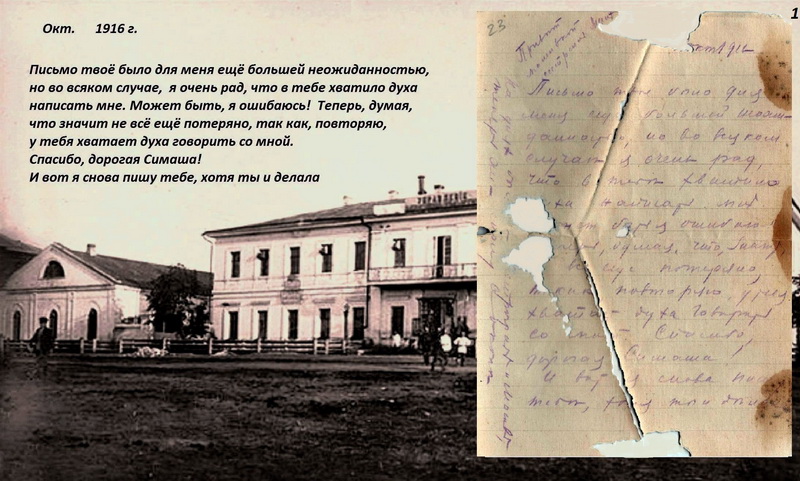 1
Окт. 1916 г.
Письмо твоё было для меня ещё большей неожиданностью,
но во всяком случае, я очень рад, что в тебе хватило духа
написать мне. Может быть, я ошибаюсь! Теперь, думая,
что значит не всё ещё потеряно, так как, повторяю,
у тебя хватает духа говорить со мной.
Спасибо, дорогая Симаша!
И вот я снова пишу тебе, хотя ты и делала
23
Привет
Письмо твое было для
меня еще большей неожи-
данностью, но во всяком
случае я очень рад,
что в тебе хватило
духа написать мне
думая, что, значит
не все еще потеряно,
так как повторяю, у тебя
хватает духа говорить
со мной. Спасибо,
дорогая Симаша!
И вот я снова пишу
тебе, хотя ты и делала